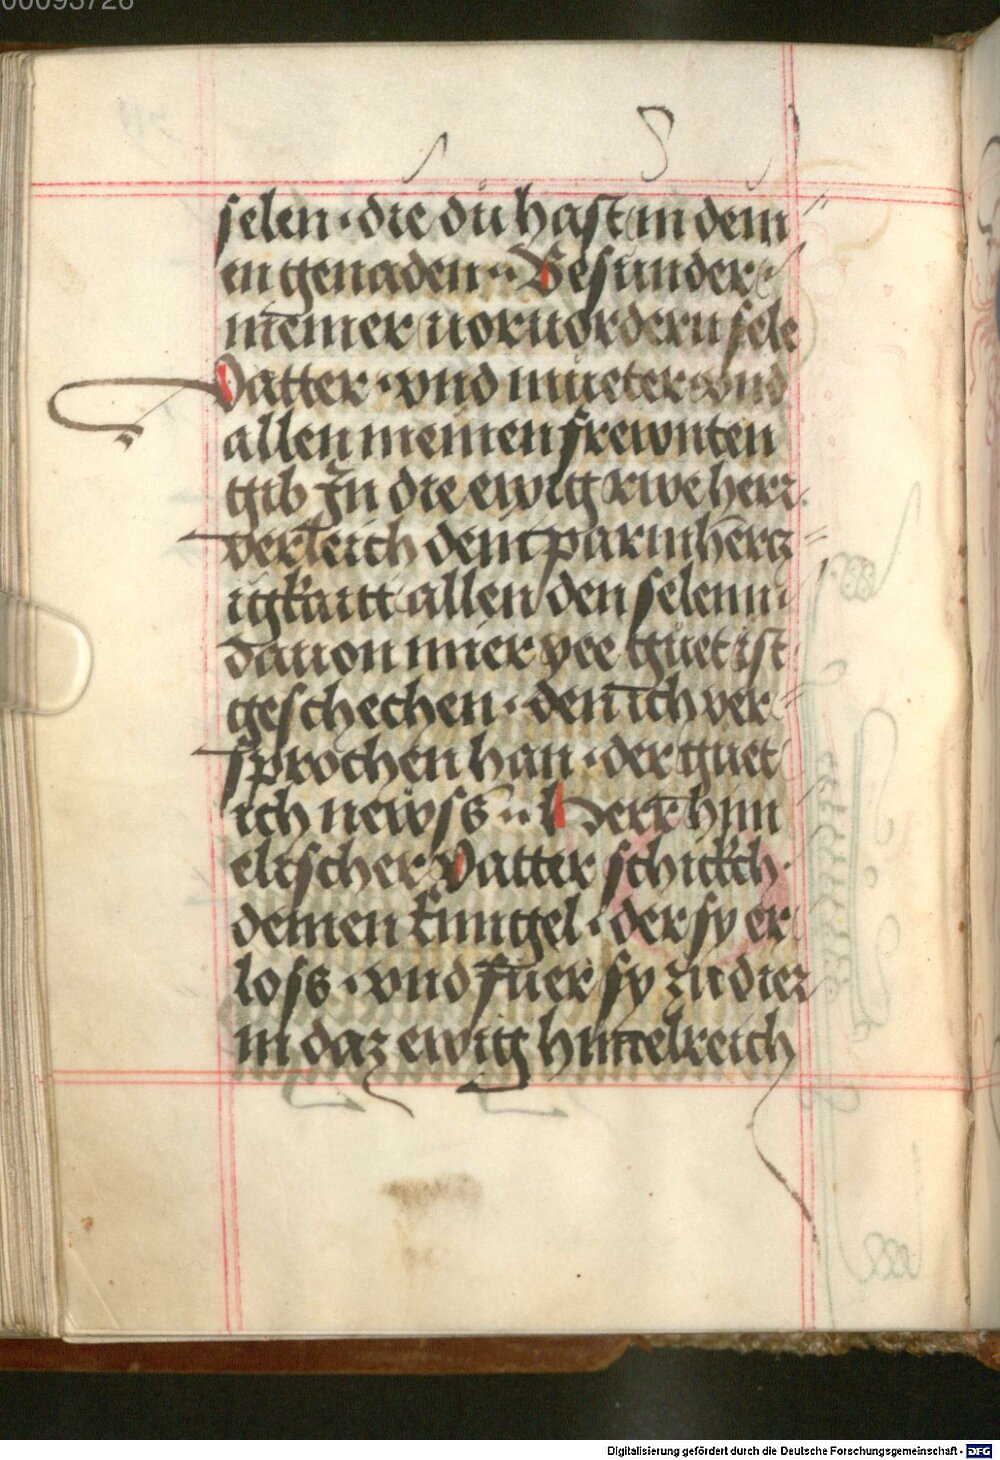 00093726
selen · die du hast in dein
en genaden ·· Besunder ·
meiner uoruordern sele
Vatter · vnd mueter · vnd
allen meinen frewnten
gib In die ewig rwe herr
verleich dein parmhercz
igkaitt allen den selenn
dauon mier yee guet ist
geschechen · den ich ver
sprochen han · der guet
ich newss ·· Herr him
elischer Vatter schickch ·
deinen Enngel · der sy er
loss · vnd fuer sy zu dier
in daz ewig himelreich
Digitalisierung gefördert durch die Deutsche Forschungsgemeinschaft - DFG